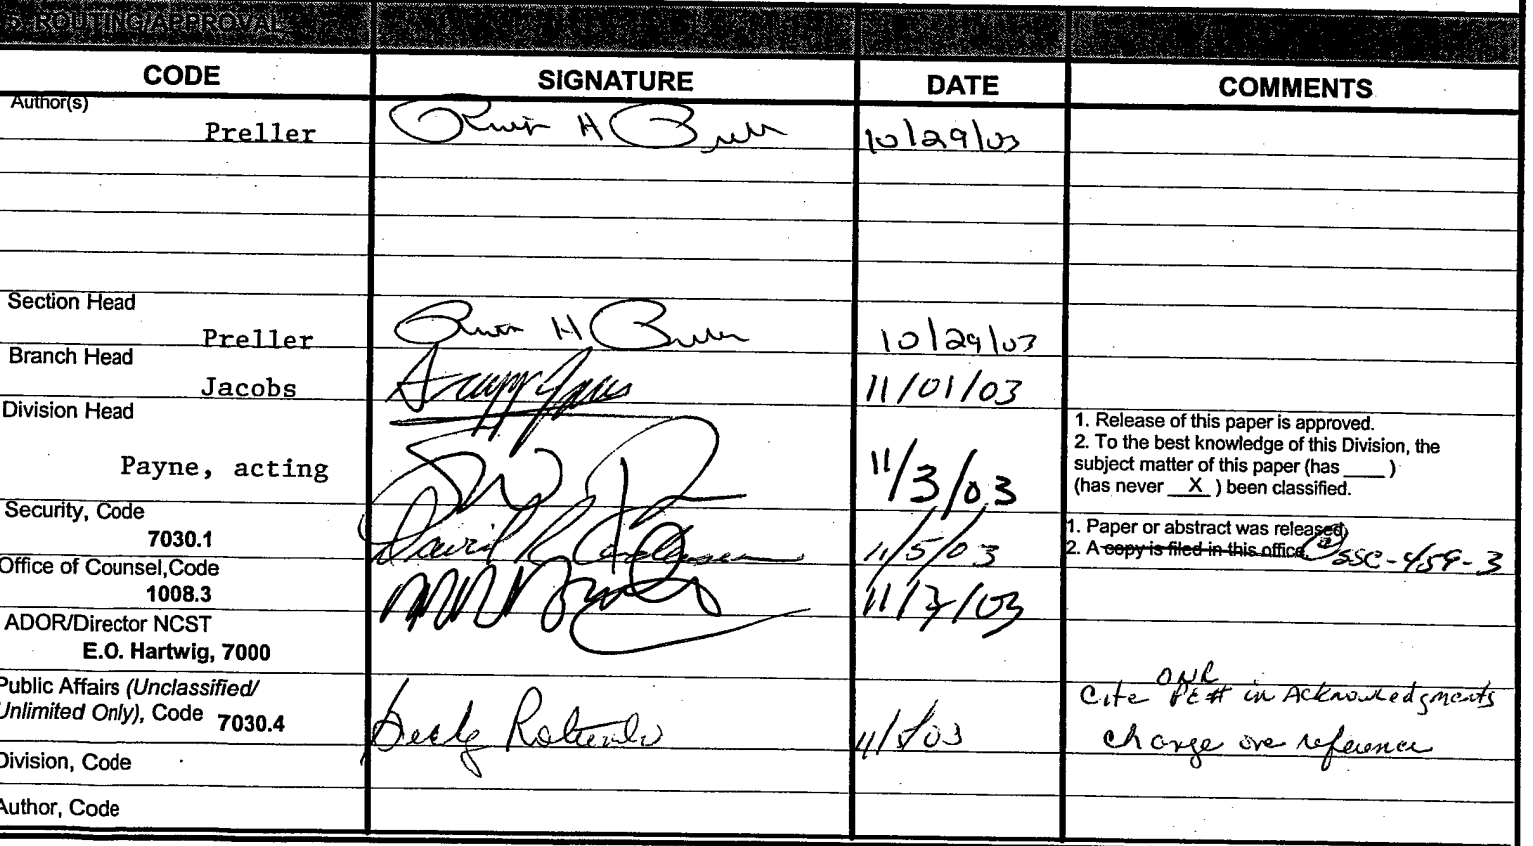 5. ROUTING/APPROVAL
CODE SIGNATURE DATE COMMENTS
Author(s)
Preller 10/29/03
Section Head
Preller 10/29/03
Branch Head
Jacobs 11/01/03
Division Head
Payne, acting 11/3/03
1. Release of this paper is approved.
2. To the best knowledge of this Division, the
subject matter of this paper (has ____ )
(has never X ) been classified.
Security, Code
7030.1 David 11/5/03
1. Paper or abstract was released.
2. A copy is filed in this office SSC-459-3
Office of Counsel,Code
1008.3
ADOR/Director NCST
E.O. Hartwig, 7000
Public Affairs (Unclassified/
Unlimited Only), Code 7030.4
ONR
Cite PE# in Acknowledgments
change one reference
Division, Code
Author, Code